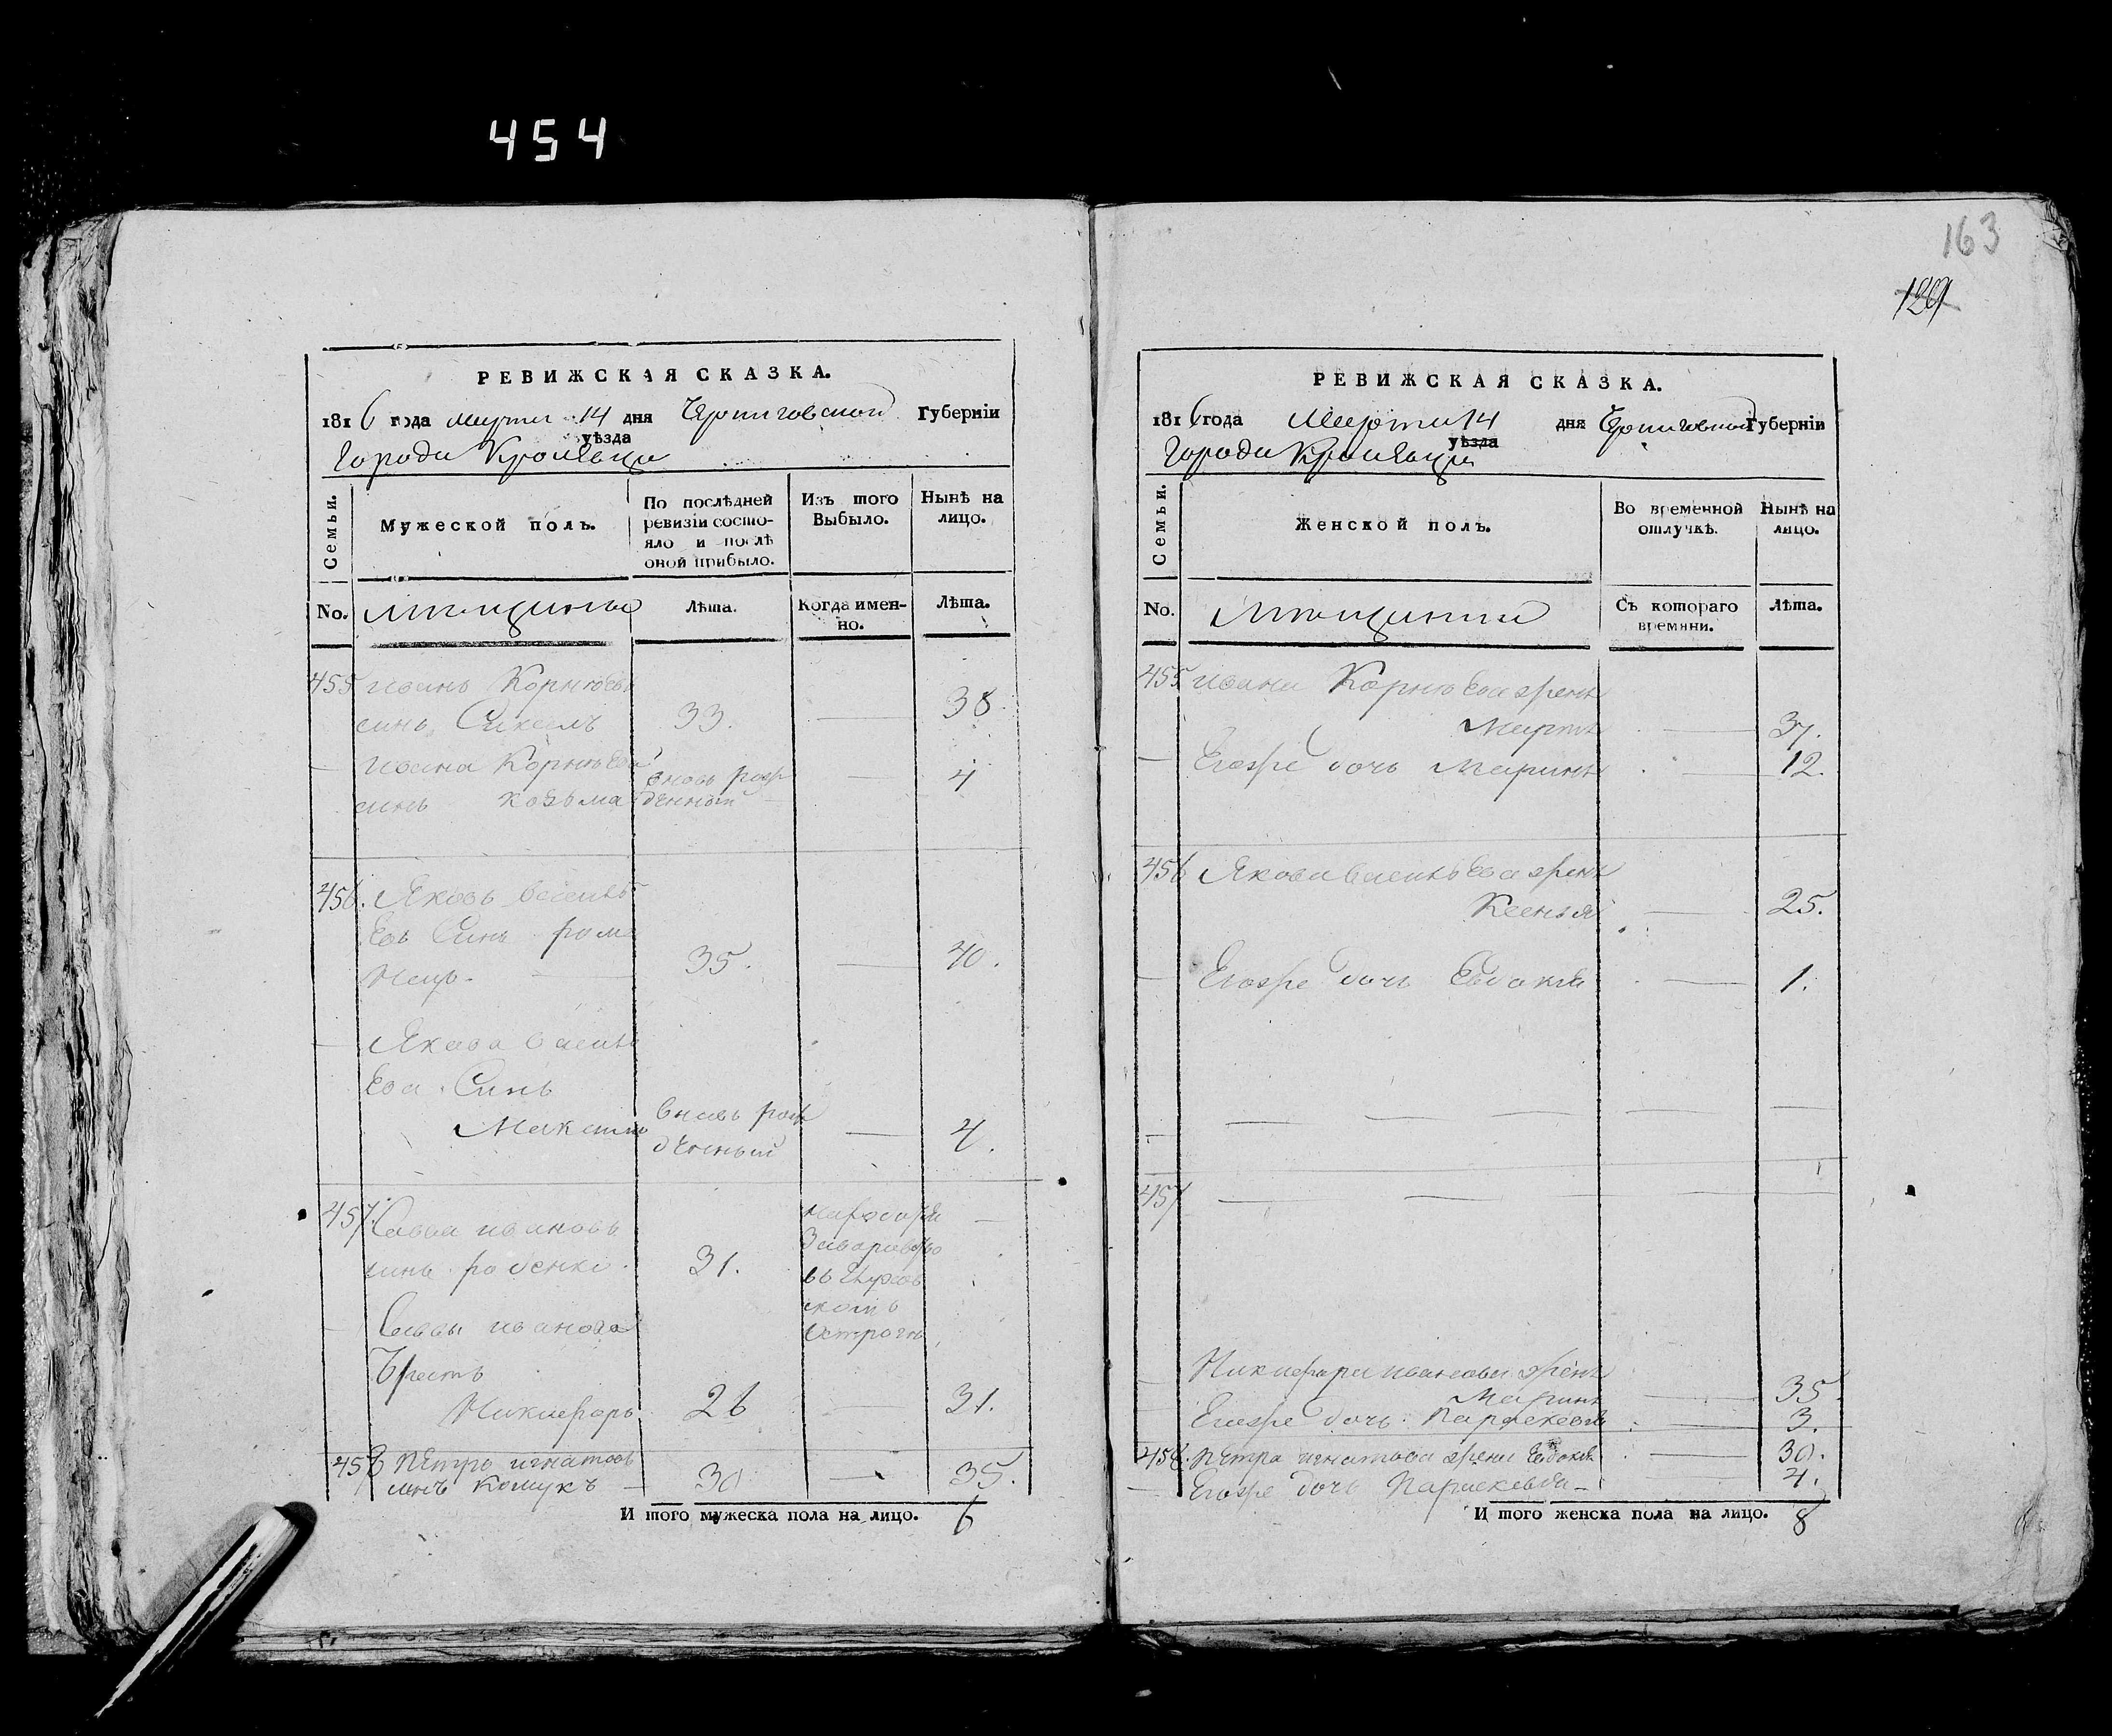 454
163
129
РЕВИЖСКАЯ СКАЗКА.
1816 года марта 14 дня Черниговской Губерніи
уѣзда
Города Кролевца
Семьи.
Мужеской полъ.
По послѣдней ревизіи состояло и послѣ оной прибыло.
Изъ того Выбыло.
Нынѣ на лицо.
No.
мѣщины
Лѣта.
Когда именно.
Лѣта.
455 иванъ Корнѣевъ
синъ 33. — 38
— ивана Корнѣева вновь рож
синъ козьма денный — 4
456. Яковъ васильѣ
евъ Синъ рома
нецъ. — 35. — 40.
— Якова василь
ева Синъ
Максимъ вновь рож
денный — 4.
457. Савва ивановъ
синъ 31.
въ
— Саввы иванова
братъ
Никифоръ 26 — 31.
458 Петръ игнатовъ
синъ 30 — 35.
И того мужеска пола на лицо. 6
РЕВИЖСКАЯ СКАЗКА.
1816 года Марта 14 дня Черниговской Губерніи
уѣзда
Города Кролевца
Семьи.
Женской полъ.
Во временной отлучкѣ.
Нынѣ на лицо.
No.
Съ котораго времяни.
Лѣта.
455 ивана Корнѣева жена
Марта — 37.
— Егожъ дочь Марина — 12.
456 Якова василѣева жена
Ксенья — 25.
— Егожъ дочь Евдокія — 1.
457
Никифора иванова жена
Марина — 35.
Егожъ дочь Параскевія — 3.
458. Петра игнатова жена Евдокія — 30.
— Егожъ дочь Параскевія — 4.
И того женска пола на лицо. 8